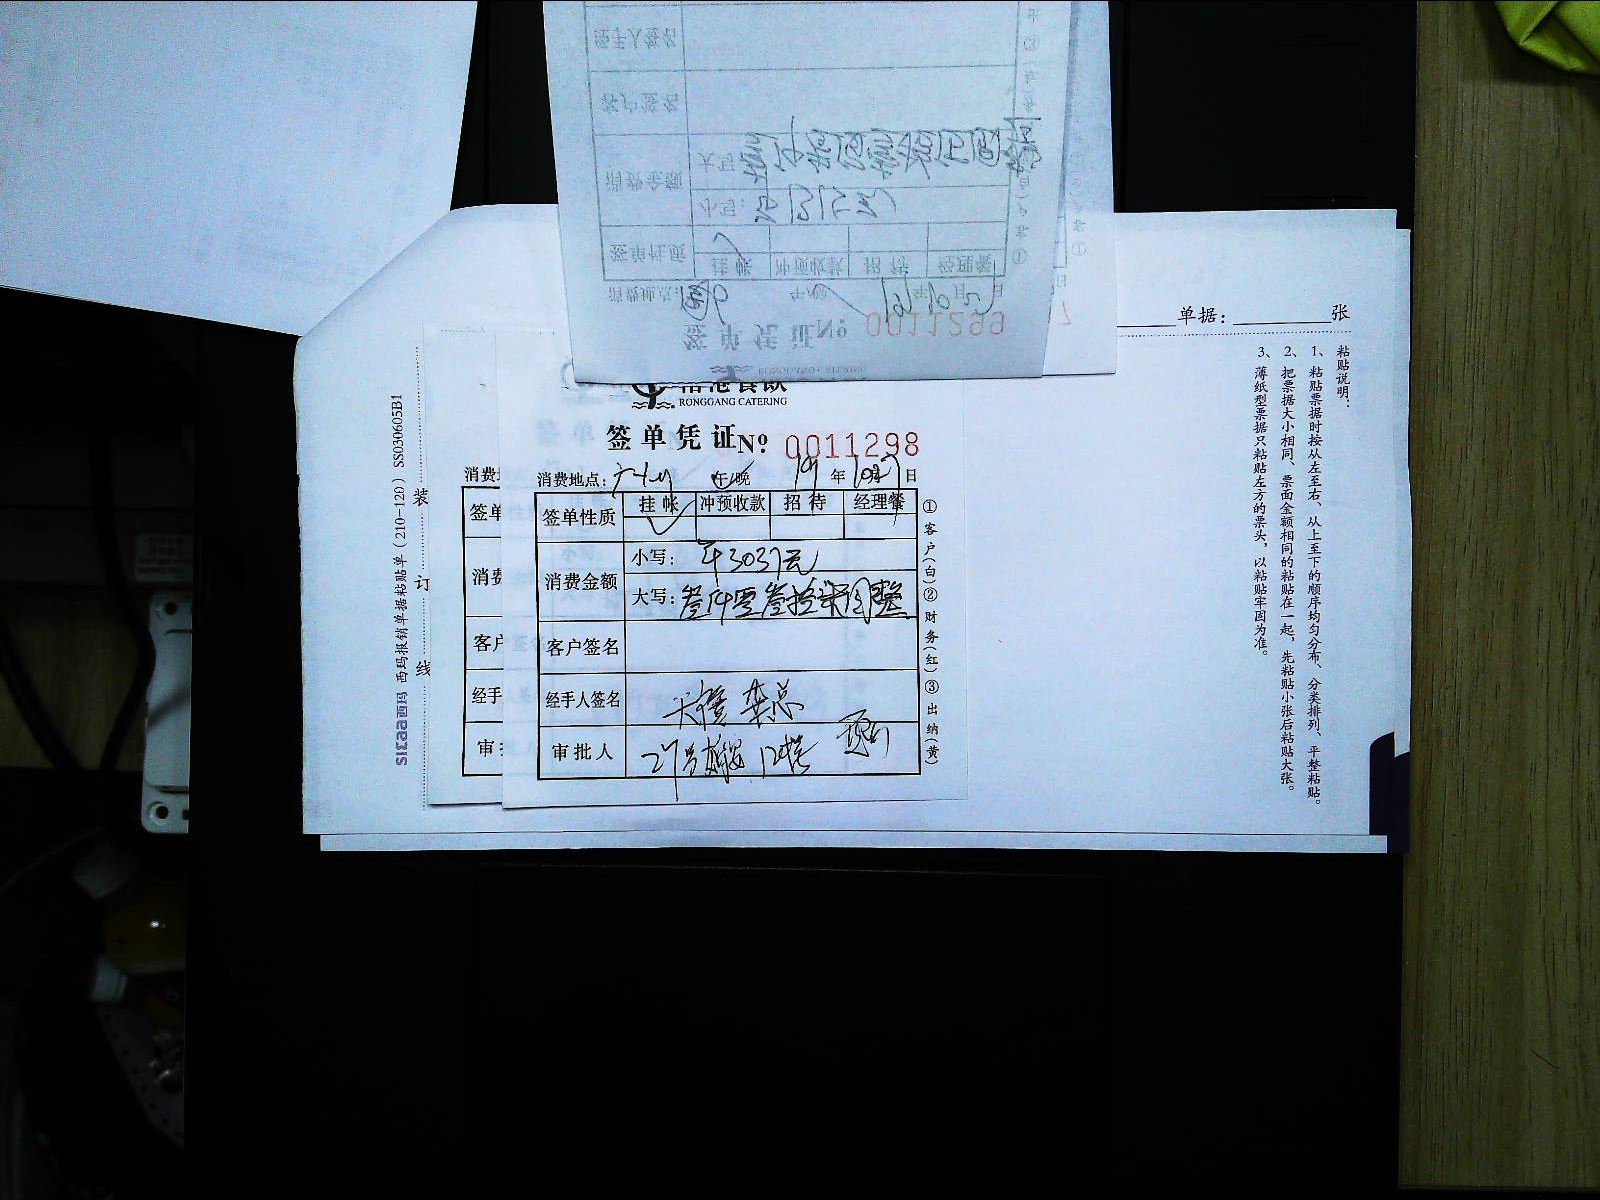 经手人签名
客户签名
消费金额
大写:
小写:
签单性质
挂帐 冲预收款 招待 经理餐
消费地点: 午晚 年 月 日
签单凭证 No 0011299
RONGGANG CATERING
7
单据: 张
RONGGANG CATERING
签单凭证 No 0011298
消费地点: 午/晚 19 年 10 月 27 日
签单性质 挂帐 冲预收款 招待 经理餐
消费金额
小写: 3037元
大写: 叁仟零叁拾柒圆整
客户签名
经手人签名
审批人
①客户(白)②财务(红)③出纳(黄)
签单
消费
客户
经手
审
粘贴说明:
1、粘贴票据时按从左至右、从上至下的顺序均匀分布、分类排列、平整粘贴。
2、把票据大小相同、票面金额相同的粘贴在一起,先粘贴小张后粘贴大张。
3、薄纸型票据只粘贴左方的票头,以粘贴牢固为准。
装订线
simaa西玛 西玛报销单据粘贴单(210-120) SS030605B1